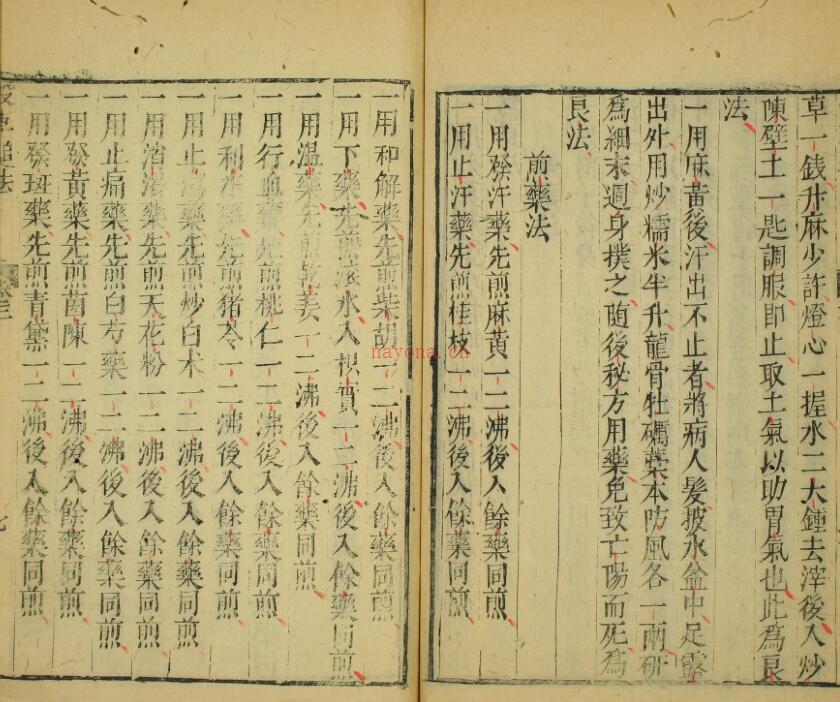 草一錢升麻少許燈心一握水二大鍾去滓後入炒
陳壁土一匙調服即止取土氣以助胃氣也此爲良
法
一用麻黃後汗出不止者將病人髮披水盆中足露
出外用炒糯米半升龍骨牡礪藁本防風各一兩研
爲細末週身撲之随後秘方用藥免致亡陽而死爲
良法
煎藥法
一用發汗藥先煎麻黃一二沸後入餘藥同煎
一用止汗藥先煎桂枝一二沸後入餘藥同煎
一用和解藥先煎柴胡一二沸後入餘藥同煎
一用下藥先煎滚水入枳實一二沸後入餘藥同煎
一用温藥先煎乾姜一二沸後入餘藥同煎
一用行血藥先煎桃仁一二沸後入餘藥同煎
一用利水藥先煎猪苓一二沸後入餘藥同煎
一用止藥先煎炒白术一二沸後入餘藥同煎
一用消渴藥先煎天花粉一二沸後入餘藥同煎
一用止痛藥先煎白芍藥一二沸後入餘藥同煎
一用發黃藥先煎茵陳一二沸後入餘藥同煎
一用發斑藥先煎青黛一二沸後入餘藥同煎
nayona.cn